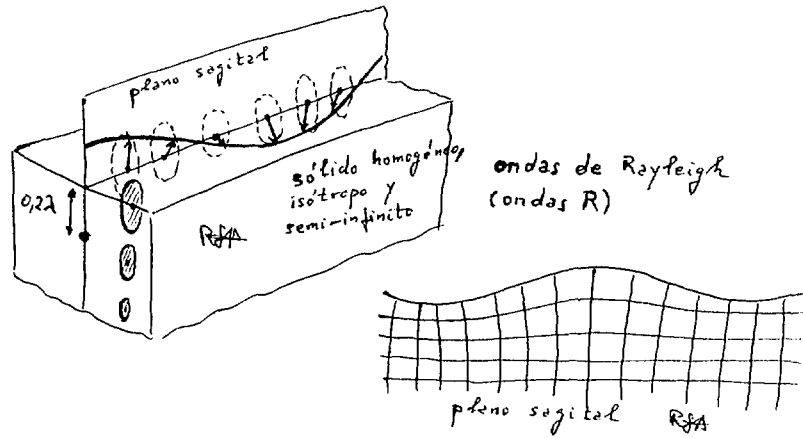 plano sagital
0,2λ
sólido homogéneo,
isótropo y
semi-infinito
ondas de Rayleigh
(ondas R)
plano sagital